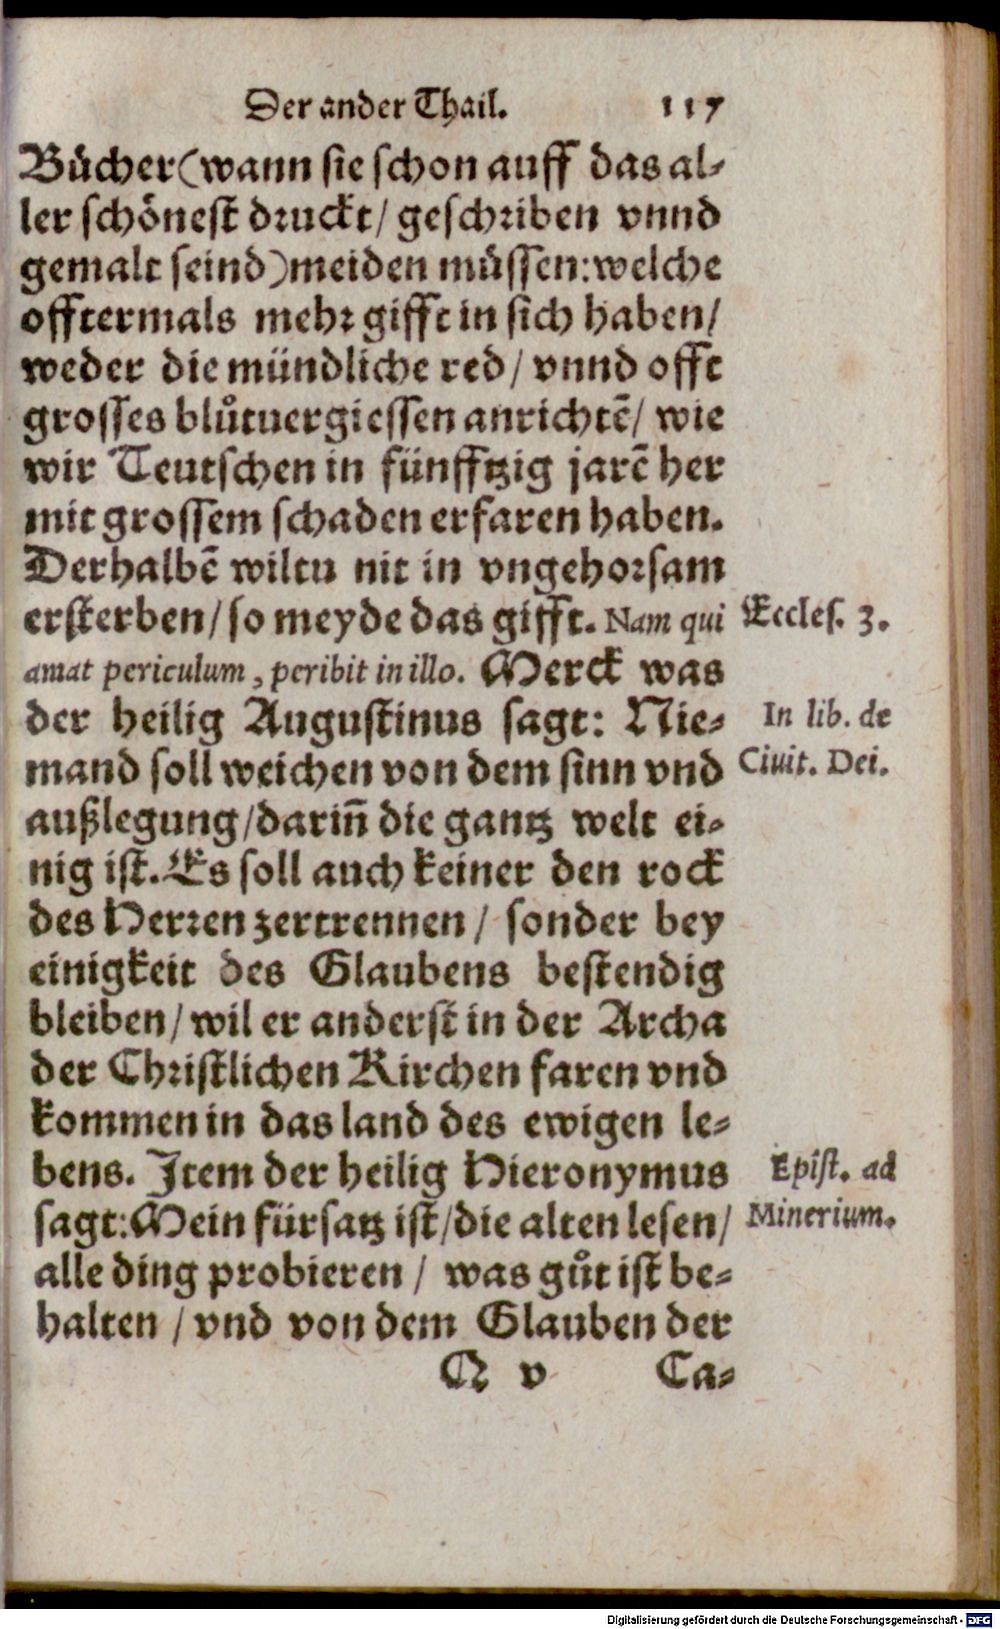 Der ander Thail. 117
Buͤcher (wann sie schon auff das al-
ler schoͤnest druckt / geschriben vnnd
gemalt seind) meiden muͤssen: welche
offtermals mehr gifft in sich haben /
weder die mündliche red / vnnd offt
grosses bluͦtuergiessen anrichtē / wie
wir Teutschen in fünfftzig jarē her
mit grossem schaden erfaren haben.
Derhalbē wiltu nit in vngehorsam
ersterben / so meyde das gifft. Nam qui
Eccles. 3.
amat periculum, peribit in illo. Merck was
der heilig Augustinus sagt: Nie-
In lib. de
mand soll weichen von dem sinn vnd
Ciuit. Dei.
außlegung / dariñ die gantz welt ei-
nig ist. Es soll auch keiner den rock
des Herren zertrennen / sonder bey
einigkeit des Glaubens bestendig
bleiben / wil er anderst in der Archa
der Christlichen Kirchen faren vnd
kommen in das land des ewigen le-
bens. Item der heilig Hieronymus
Epist. ad
sagt: Mein fürsatz ist / die alten lesen /
Minerium.
alle ding probieren / was guͦt ist be-
halten / vnd von dem Glauben der
Q v Ca-
Digitalisierung gefördert durch die Deutsche Forschungsgemeinschaft - DFG